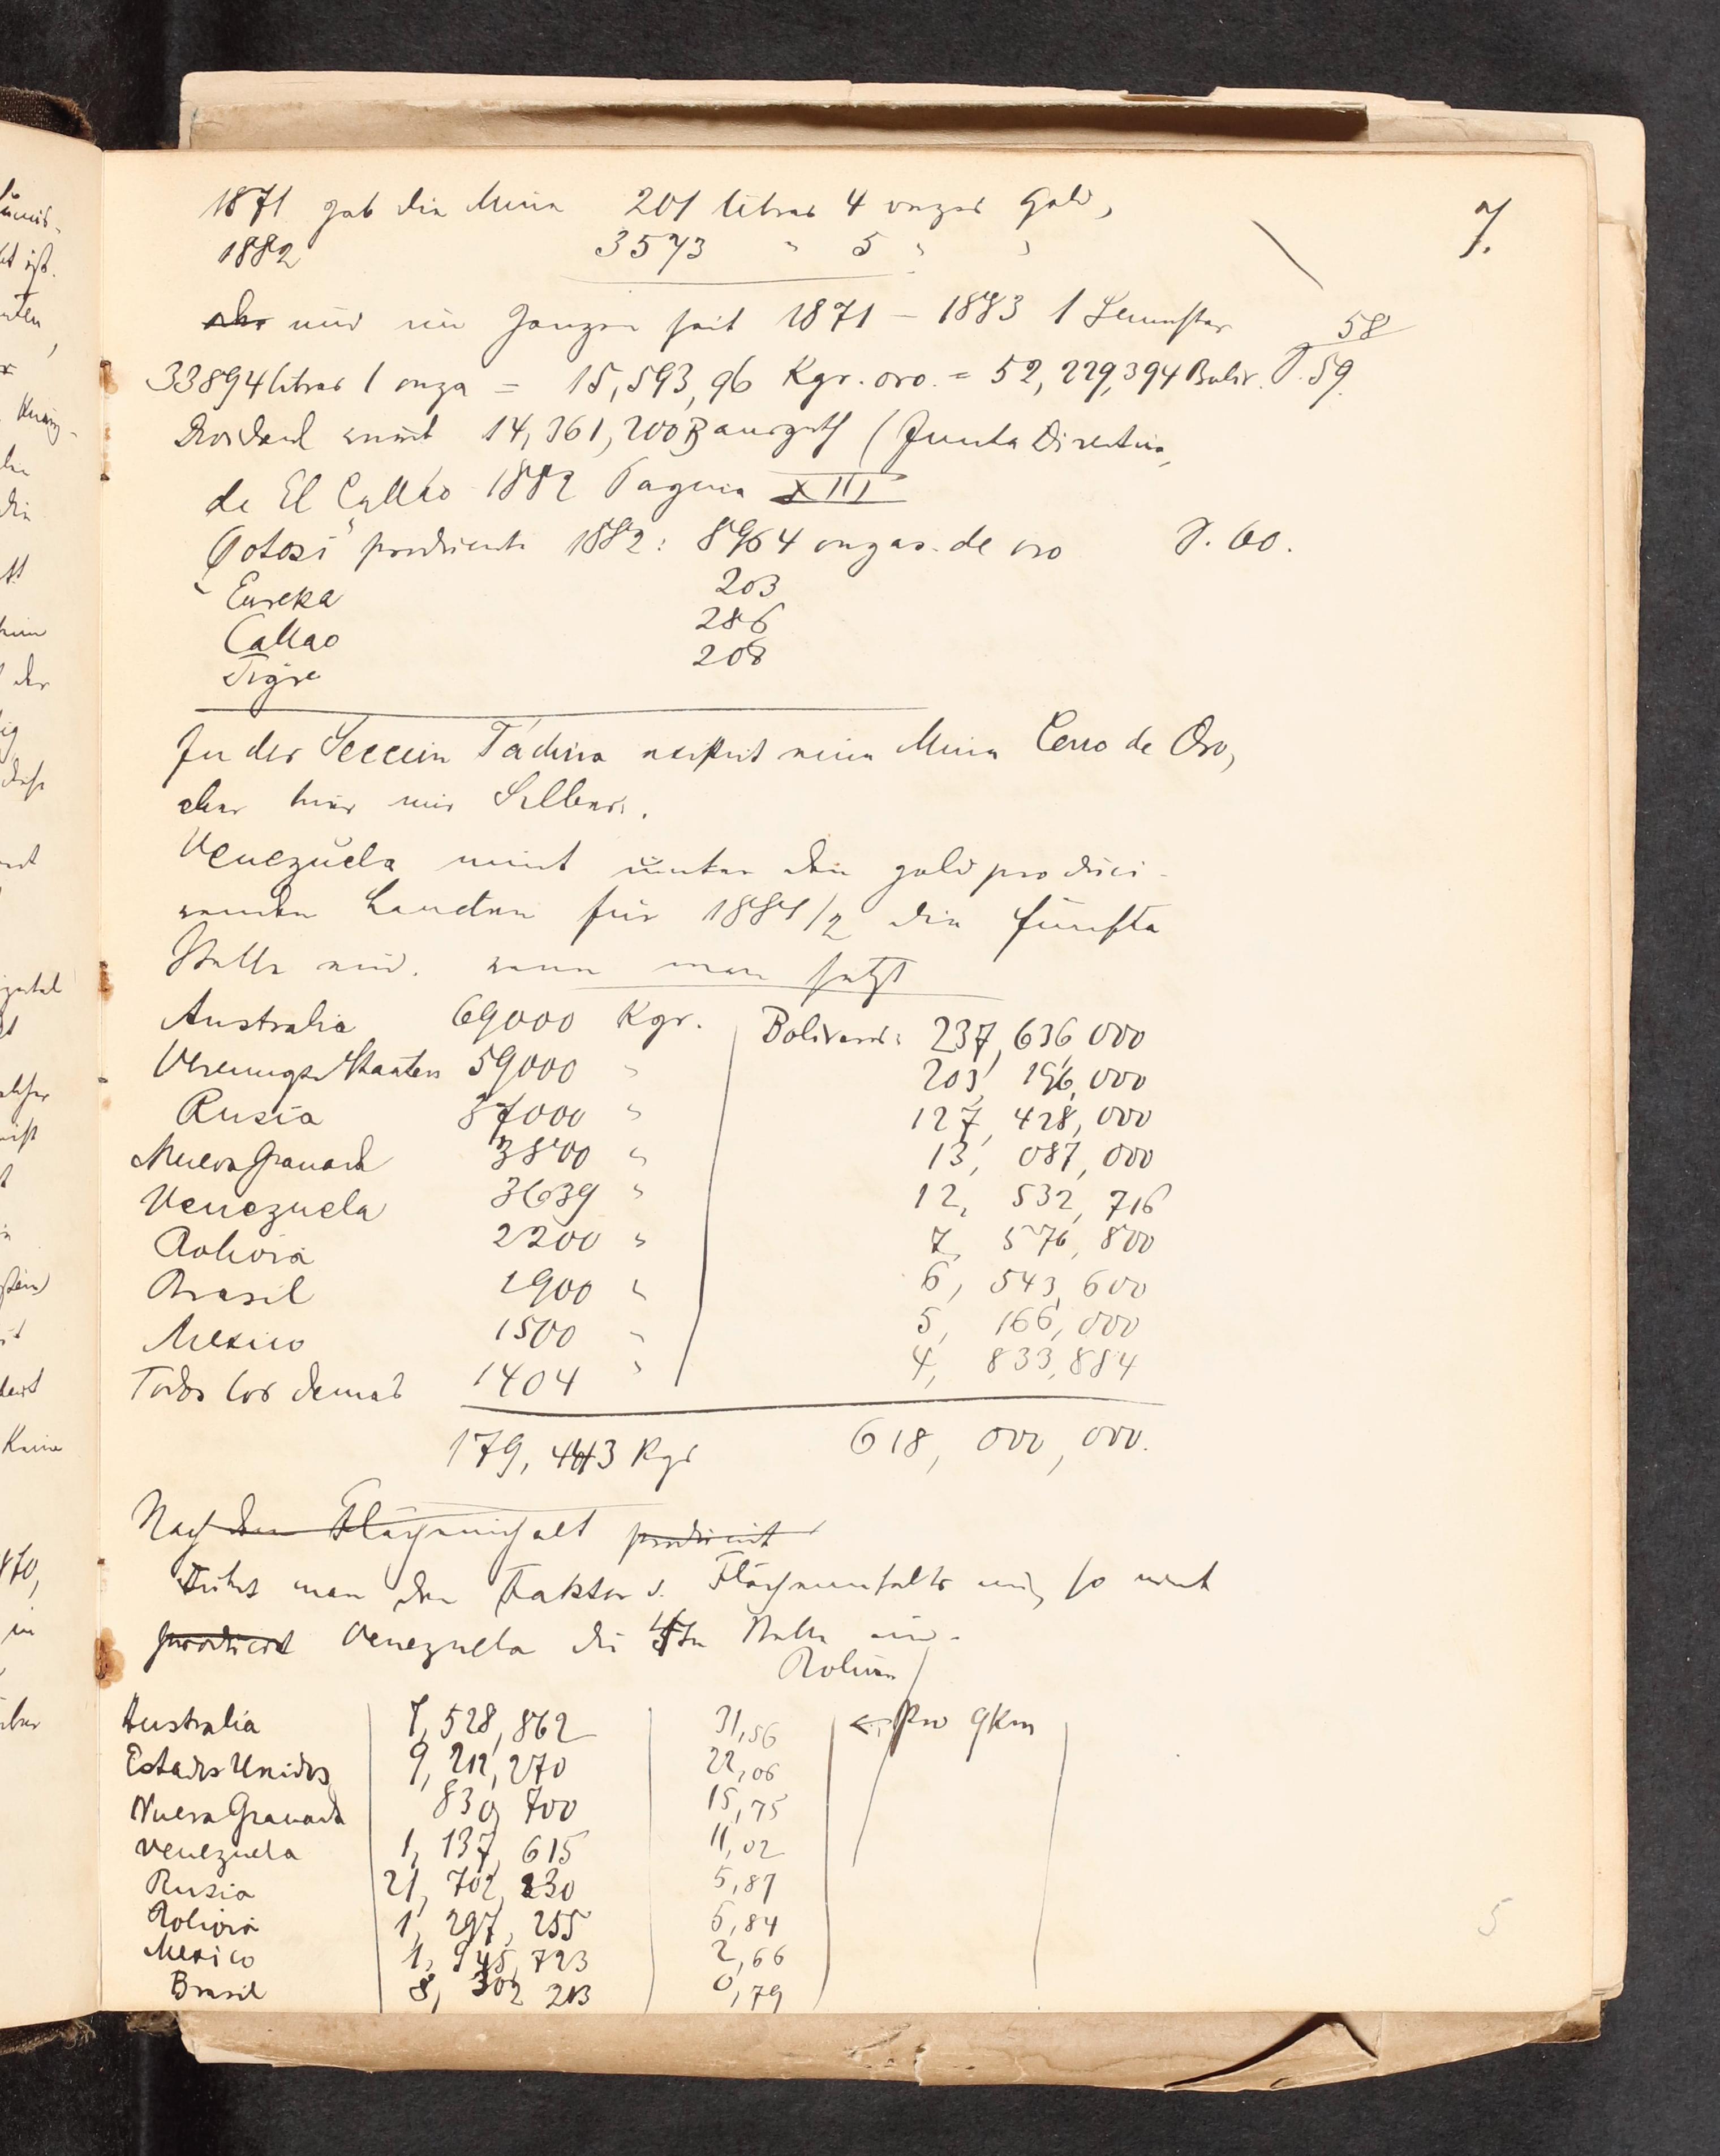 7.
1871 gab die Mina 201 libras 4 onzas Gold,
1882 3573 " 5 " "
aber und im Ganzen seit 1871 – 1883 1 Semester 58
33894 libras 1 onza = 15,593,96 Kgr. oro. = 52,229,394 Boliv. P. 59.
Dividend wurd 14,361,200 B ausgeth (Junta Directiva,
de El Callao 1882 Pagina XIII
Potosi producirte 1882: 8964 onzas de oro P. 60.
Eureka 203
Callao 286
Tigre 208
In der Seccion Táchira existirt eine Mina Cerro de Oro,
aber hier nur Silber.
Venezuela nimt unter den goldproduci-
renden Ländern für 1881/2 die fünfte
Stelle ein. wenn man setzt
Australia 69000 Kgr. Bolivares: 237,636,000
Vereinigte Staaten 59000 " 203,196,000
Rusia 37000 " 127,428,000
Nueva Granada 3800 " 13,087,000
Venezuela 3639 " 12,532,716
Bolivia 2200 " 7,576,800
Brasil 1900 " 6,543,600
Mexico 1500 " 5,166,000
Todos los demas 1404 " 4,833,884
179,443 Kgr 618,000,000.
Nach dem Flächeninhalt producirt
Führt man den Faktor d. Flächeninhalts ein, so nimt
producirt Venezuela die 4te Stelle ein.
Bolivar
Australia 7,528,862 31,56 ← Pro qkm
Estados Unidos 9,212,270 22,06
Nueva Granada 830,700 15,75
Venezuela 1,137,615 11,02
Rusia 21,702,230 5,87
Bolivia 1,297,255 5,84
Mexico 1,945,723 2,66
Brasil 8,302,213 0,79
5